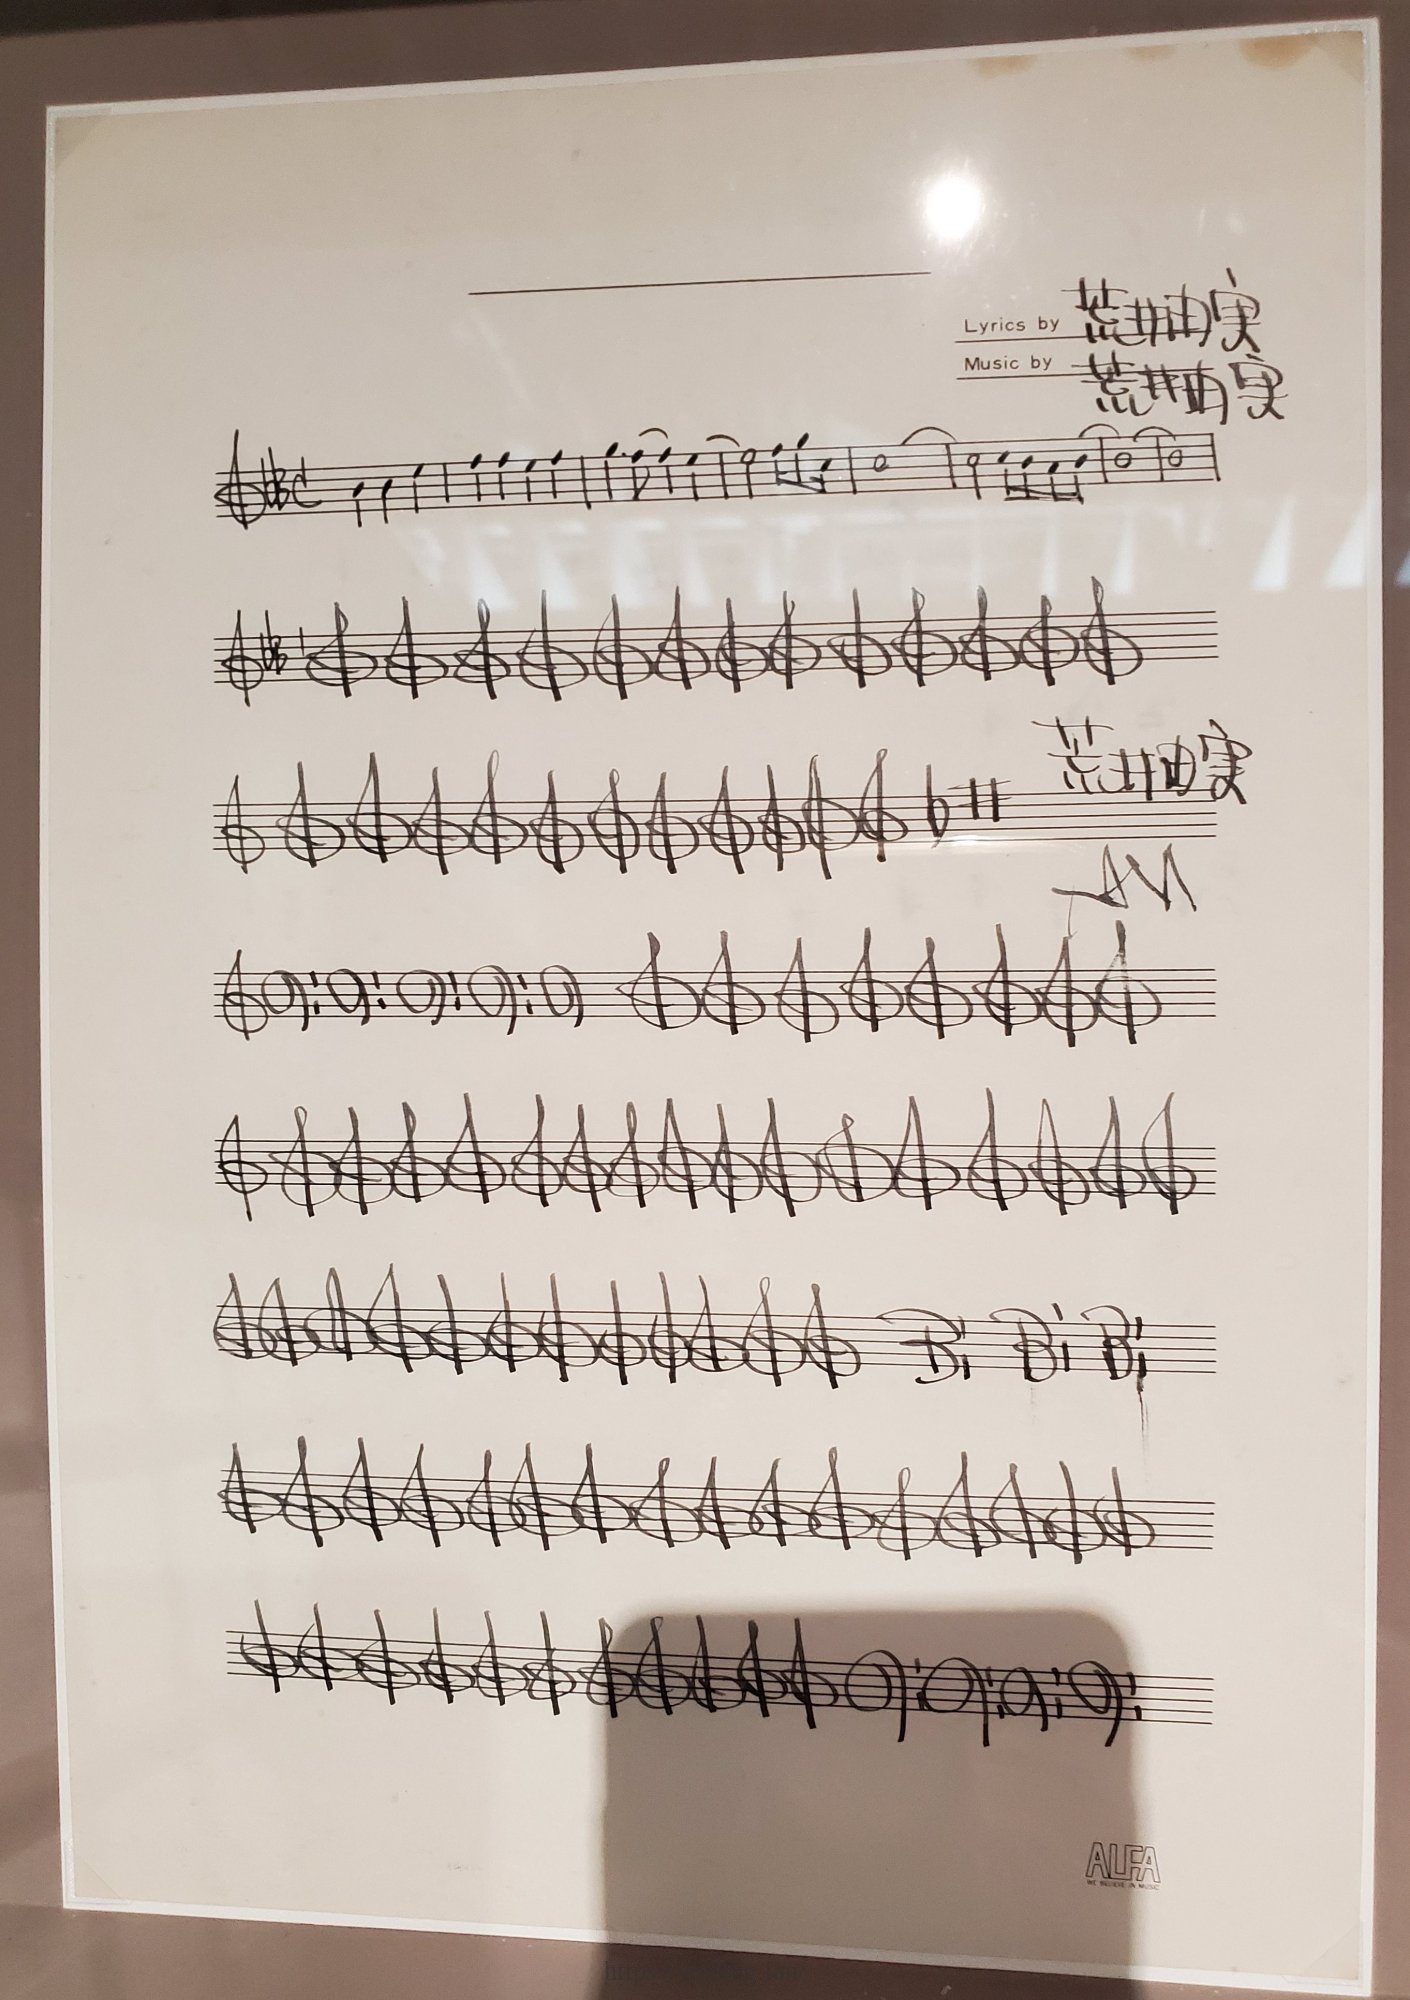 Lyrics by 荒井由実
Music by 荒井由実
荒井由実
ALFA
WE BELIEVE IN MUSIC